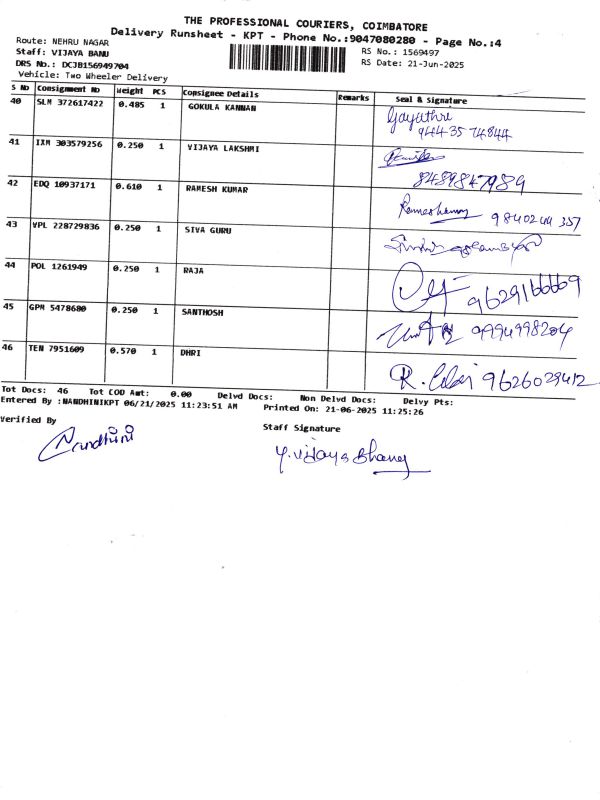 THE PROFESSIONAL COURIERS, COIMBATORE
Delivery Runsheet - KPT - Phone No.:9047080280 - Page No.:4
Route: NEHRU NAGAR
RS No.: 1569497
Staff: VIJAYA BANU
RS Date: 21-Jun-2025
DRS No.: DCJB156949704
Vehicle: Two Wheeler Delivery
S No Consignment No Weight PCS Consignee Details Remarks Seal & Signature
40 SLM 372617422 0.485 1 GOKULA KANNAN Gayathri
94435 74844
41 IXM 303579256 0.250 1 VIJAYA LAKSHMI
8489847989
42 EDQ 10937171 0.610 1 RAMESH KUMAR
9840244357
43 VPL 228729836 0.250 1 SIVA GURU
44 POL 1261949 0.250 1 RAJA
9629166669
45 GPR 5478680 0.250 1 SANTHOSH
9994998204
46 TEN 7951609 0.570 1 DHRI R. 9626029412
Tot Docs: 46 Tot COD Amt: 0.00 Delvd Docs: Non Delvd Docs: Delvy Pts:
Entered By :NANDHINIKPT 06/21/2025 11:23:51 AM Printed On: 21-06-2025 11:25:26
Verified By
Staff Signature
Nandhini
Y.Vijaya Bhanu